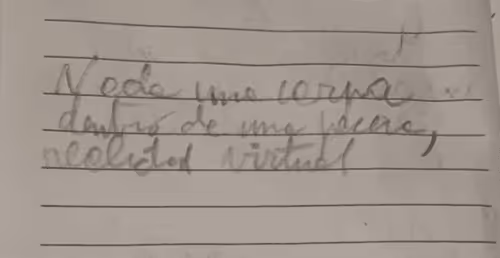 Nada una carpa
dentro de una pecera,
realidad virtual